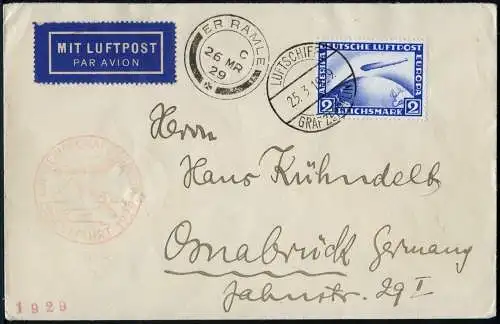 MIT LUFTPOST
PAR AVION
ER RAMLE
C
26 MR
29
LUFTSCHIFF
25.3.19
GRAF
DEUTSCHE LUFTPOST
EUROPA
2 REICHSMARK 2
Herrn
Hans Kühndelt
Osnabrück Germany
Jahnstr. 29 I
1929